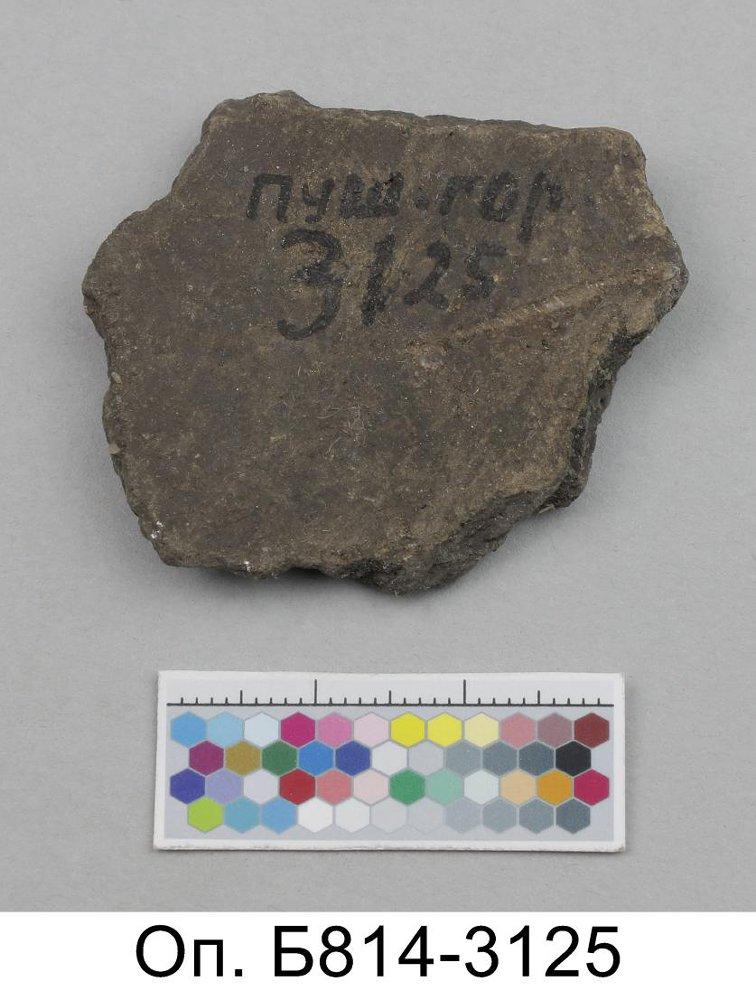 пуш.гор
3125
Оп. Б814-3125